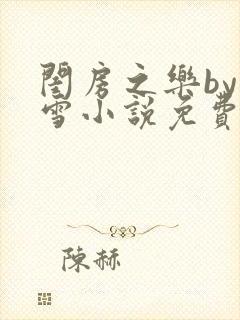 閨房之樂by
雪小說免費
陳赫